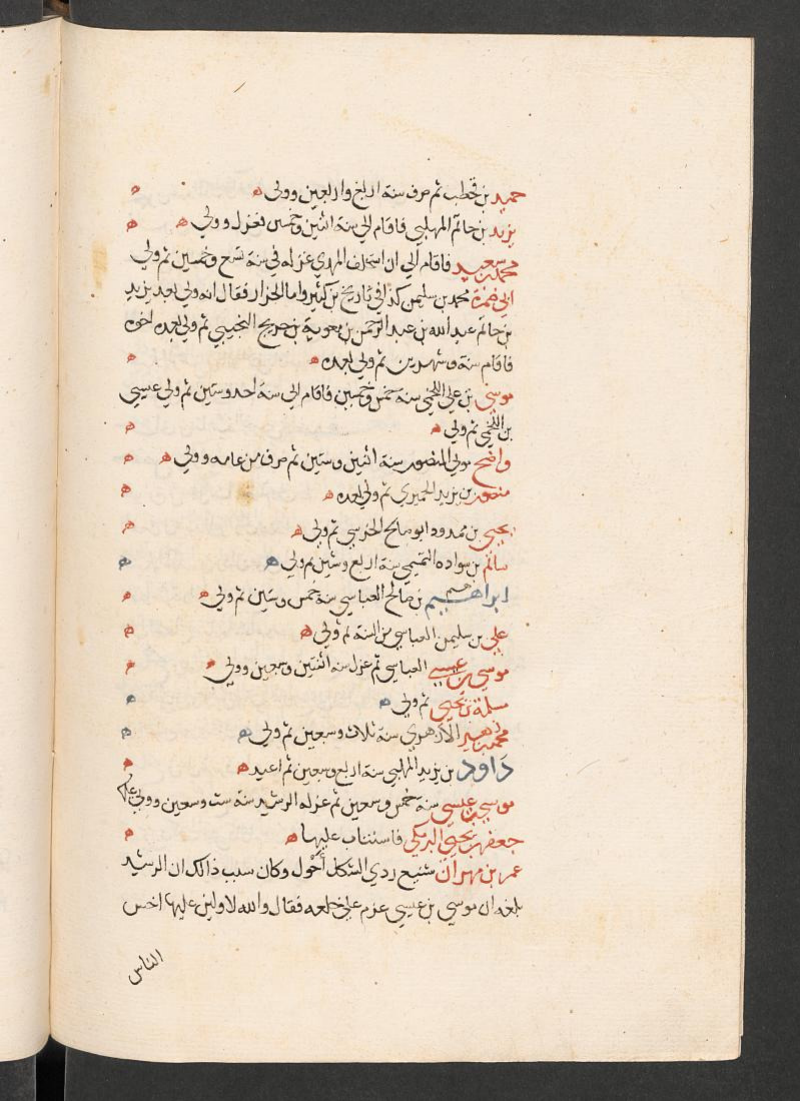 حميد بن قحطب ثم صرف سنة اربع واربعين وولي ه ه
يزيد بن حاتم المهلبي فاقام الي سنة اثنين وخمس فعزل وولي ه ه
محمد بن سعيد فاقام الي ان استخلف المهدي عزله في سنة تسع وخمسين ثم ولي
ابي ضمرة محمد بن سليمن كذا في تاريخ بن كثير واما الجزار فقال انه ولي بعد يزيد
بن حاتم عبد الله بن عبد الرحمن بن معوية بن حريج التجيبي ثم ولي بعده اخوه
فاقام سنة وشهرين ثم ولي بعده ه ه
موسي بن علي اللخمي سنة خمس وخمسين فاقام الي سنة احد وستين ثم ولي عيسي
بن اللخمي ثم ولي ه ه
واضح مولي المنصور سنة اثنين وستين ثم صرف من عامه وولي ه ه
منصور بن يزيد الحميري ثم ولي بعده ه ه
يحيي بن ممدود ابو صالح الخرسي ثم ولي ه ه
سالم بن سواده التميمي سنة اربع وستين ثم ولي ه ه
ابراهيم بن صالح العباسي سنة خمس وستين ثم ولي ه ه
علي بن سليمن العباسي من السنة ثم ولي ه ه
موسي بن عيسي العباسي ثم عزل سنة اثنتين وسبعين وولي ه ه
مسلمة بن يحيي ثم ولي ه ه
محمد بن زهير الازهري سنة ثلاث وسبعين ثم ولي ه ه
داود بن يزيد المهلبي سنة اربع وسبعين ثم اعيد ه ه
موسي بن عيسي سنة خمس وسبعين ثم عزله الرشيد سنة ست وسبعين وولي عليها
جعفر بن يحيي البرمكي فاستناب عليها ه ه
عمر بن مهران شنيع ردي الشكل أحول وكان سبب ذالك ان الرشيد
بلغه ان موسي بن عيسي عزم علي خلعه فقال والله لاولين عليها اخس
الناس